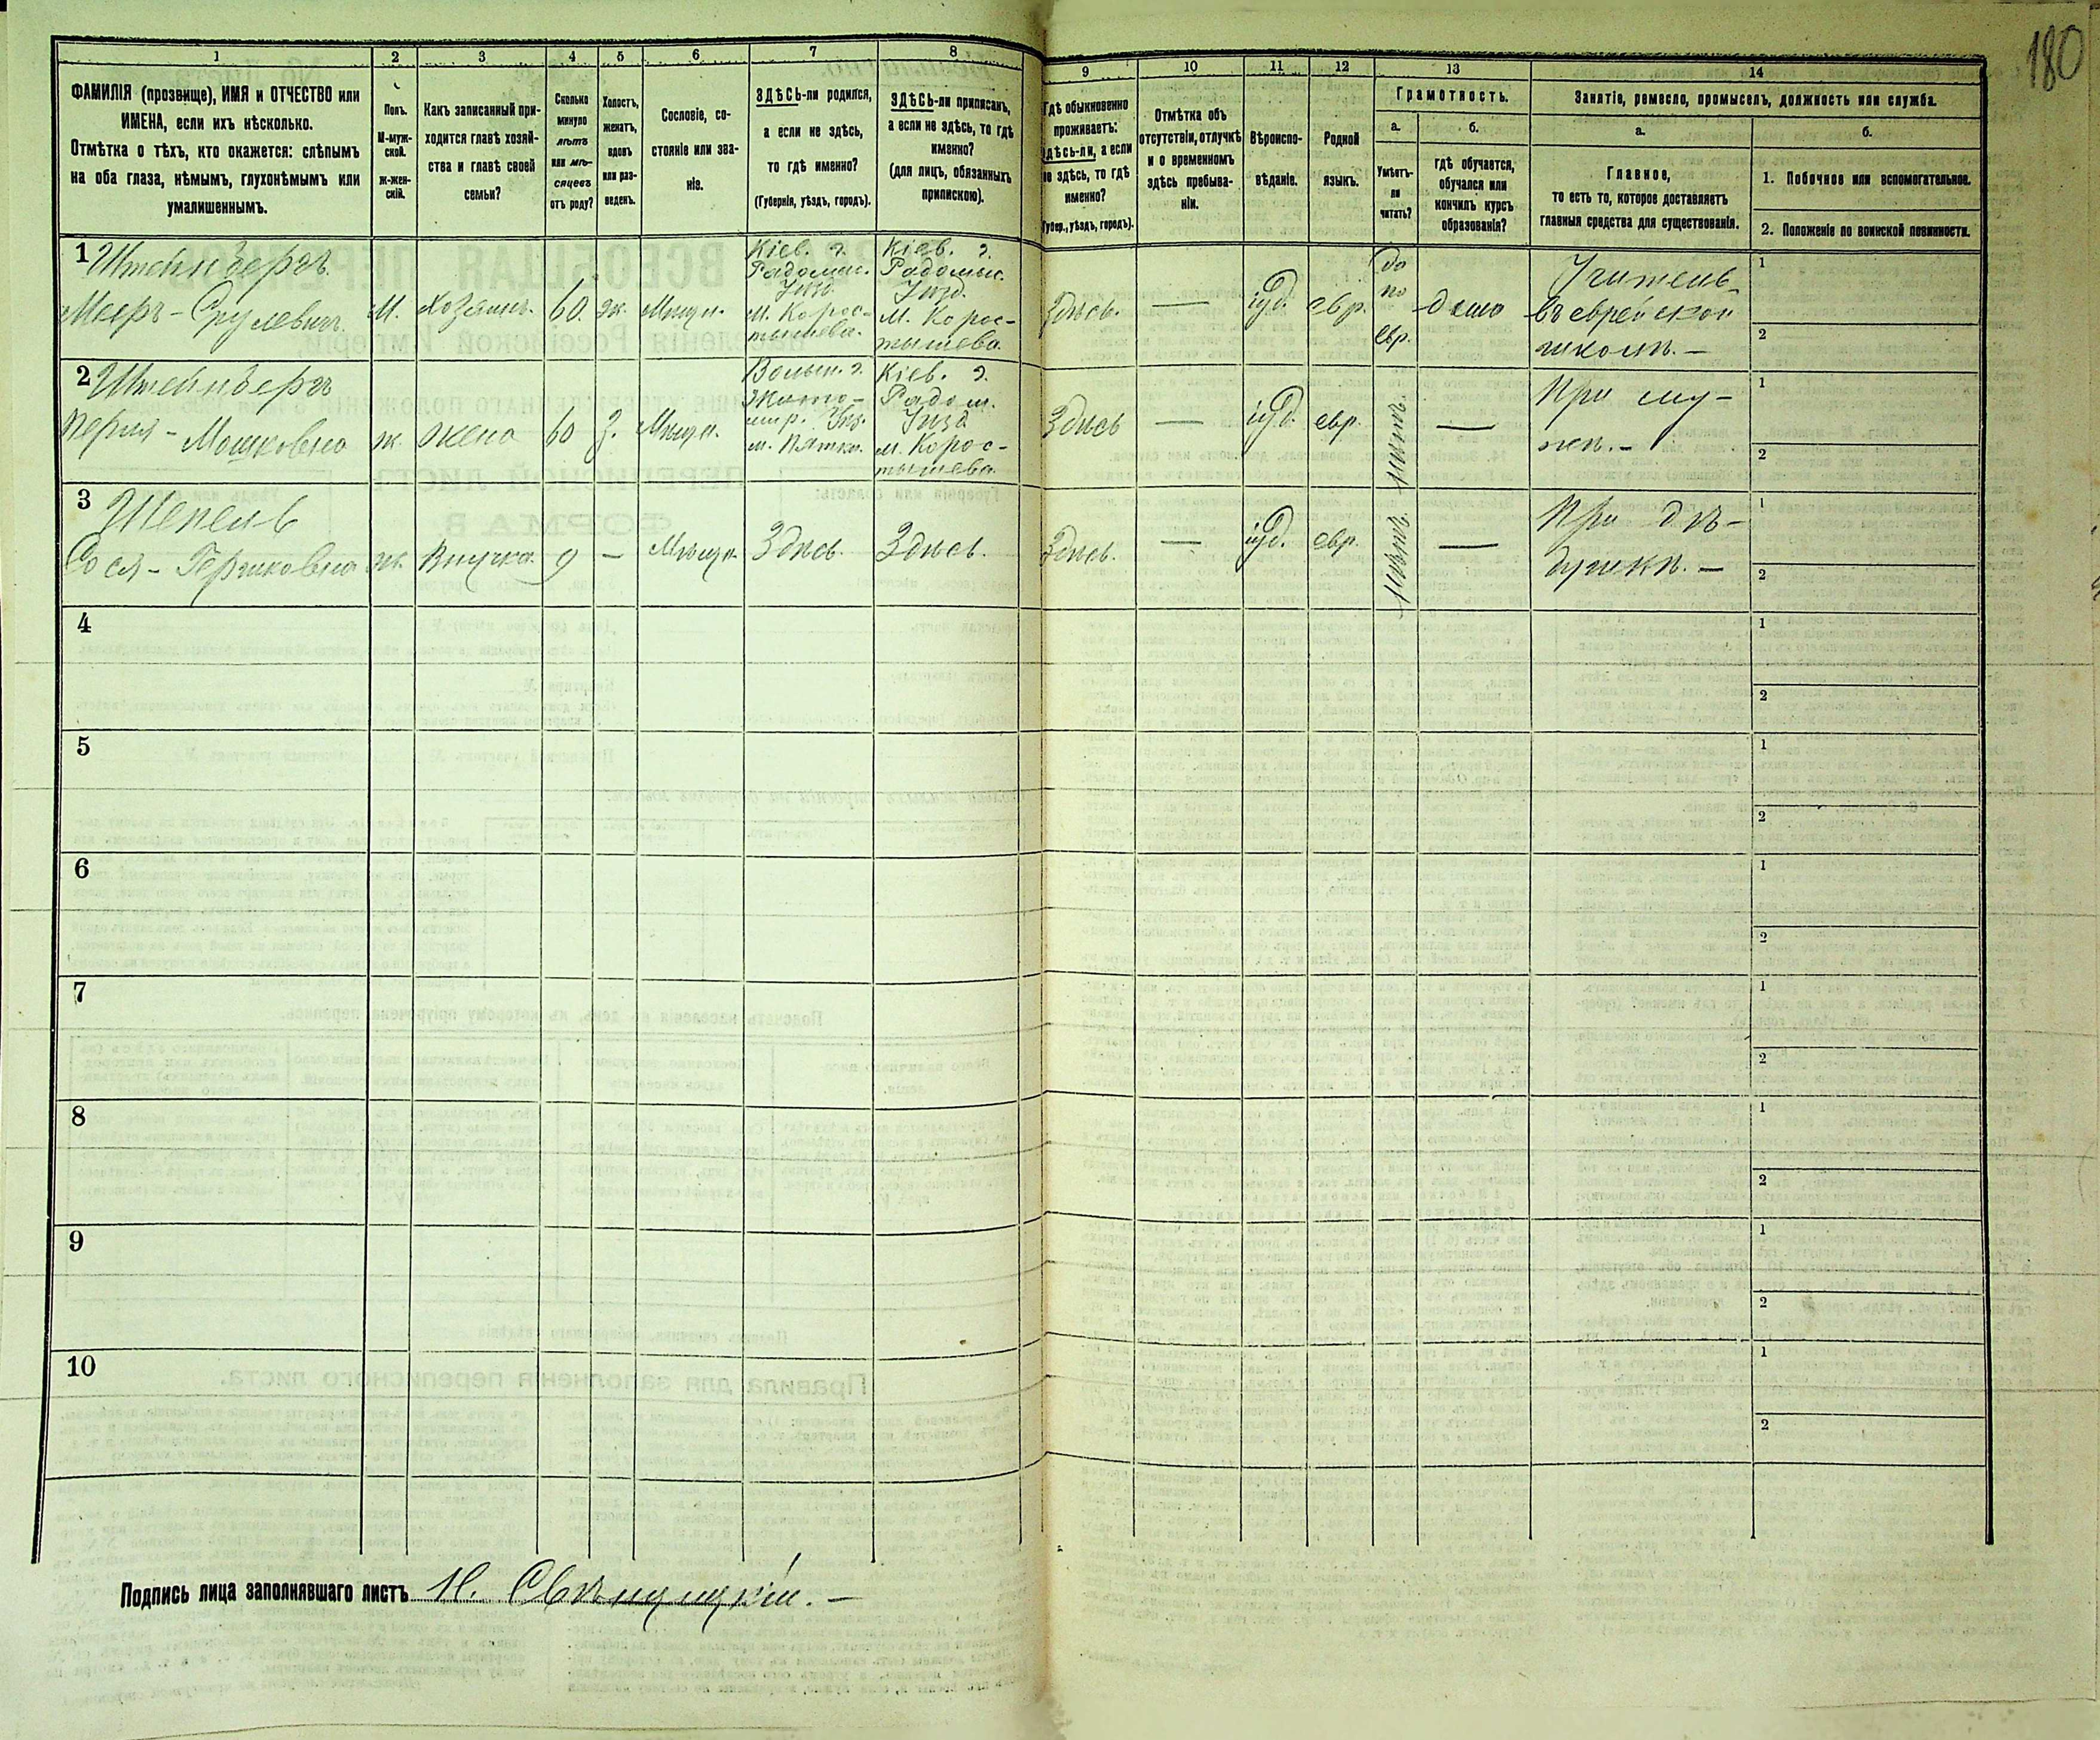 180
1
2
3
4
5
6
7
8
9
10
11
12
13
14
ФАМИЛІЯ (прозвище), ИМЯ и ОТЧЕСТВО или
ИМЕНА, если ихъ нѣсколько.
Отмѣтка о тѣхъ, кто окажется: слѣпымъ
на оба глаза, нѣмымъ, глухонѣмымъ или
умалишеннымъ.
Полъ.
М-муж-
ской.
ж-жен-
скій.
Какъ записанный при-
ходится главѣ хозяй-
ства и главѣ своей
семьи?
Сколько
минуло
лѣтъ
или мѣ-
сяцевъ
отъ роду?
Холостъ,
женатъ,
вдовъ
или раз-
веденъ.
Сословіе, со-
стояніе или зва-
ніе.
ЗДѢСЬ-ли родился,
а если не здѣсь,
то гдѣ именно?
(Губернія, уѣздъ, городъ).
ЗДѢСЬ-ли приписанъ,
а если не здѣсь, то гдѣ
именно?
(для лицъ, обязанныхъ
припискою).
Гдѣ обыкновенно
проживаетъ:
здѣсь-ли, а если
не здѣсь, то гдѣ
именно?
(Губер., уѣздъ, городъ).
Отмѣтка объ
отсутствіи, отлучкѣ
и о временномъ
здѣсь пребыва-
ніи.
Вѣроиспо-
вѣданіе.
Родной
языкъ.
Грамотность.
а.
Умѣетъ-
ли
читать?
б.
гдѣ обучается,
обучался или
кончилъ курсъ
образованія?
Занятіе, ремесло, промыселъ, должность или служба.
а.
Главное,
то есть то, которое доставляетъ
главныя средства для существованія.
б.
1. Побочное или вспомогательное.
2. Положеніе по воинской повинности.
1
Штейнбергъ
Мееръ - Срулевичъ
М.
хозяинъ.
60.
ж.
Мѣщ.
Кіев. г.
Радомыс.
Уѣзд.
м. Корос-
тышева.
Кіев. г.
Радомыс.
Уѣзд.
м. Корос-
тышева.
Здѣсь.
—
іуд.
евр.
да
по
евр.
дома
Учитель
въ еврейской
школѣ. —
1
2
2
Штейнбергъ
Перля - Мошковна
ж.
жена
60
з.
Мѣщ.
Волын. г.
Жито-
мир. Уѣз.
м. Пятки.
Кіев. г.
Радом.
Уѣзд
м. Корос-
тышева
Здѣсь
—
іуд.
евр.
нѣтъ.
—
При му-
жѣ. —
1
2
3
Шепель
Сося - Гершковна
ж.
Внучка.
9
—
Мѣщ.
Здѣсь.
Здѣсь.
Здѣсь.
—
іуд.
евр.
нѣтъ.
—
При дѣ-
душкѣ. —
1
2
4
1
2
5
1
2
6
1
2
7
1
2
8
1
2
9
1
2
10
1
2
Подпись лица заполнявшаго листъ